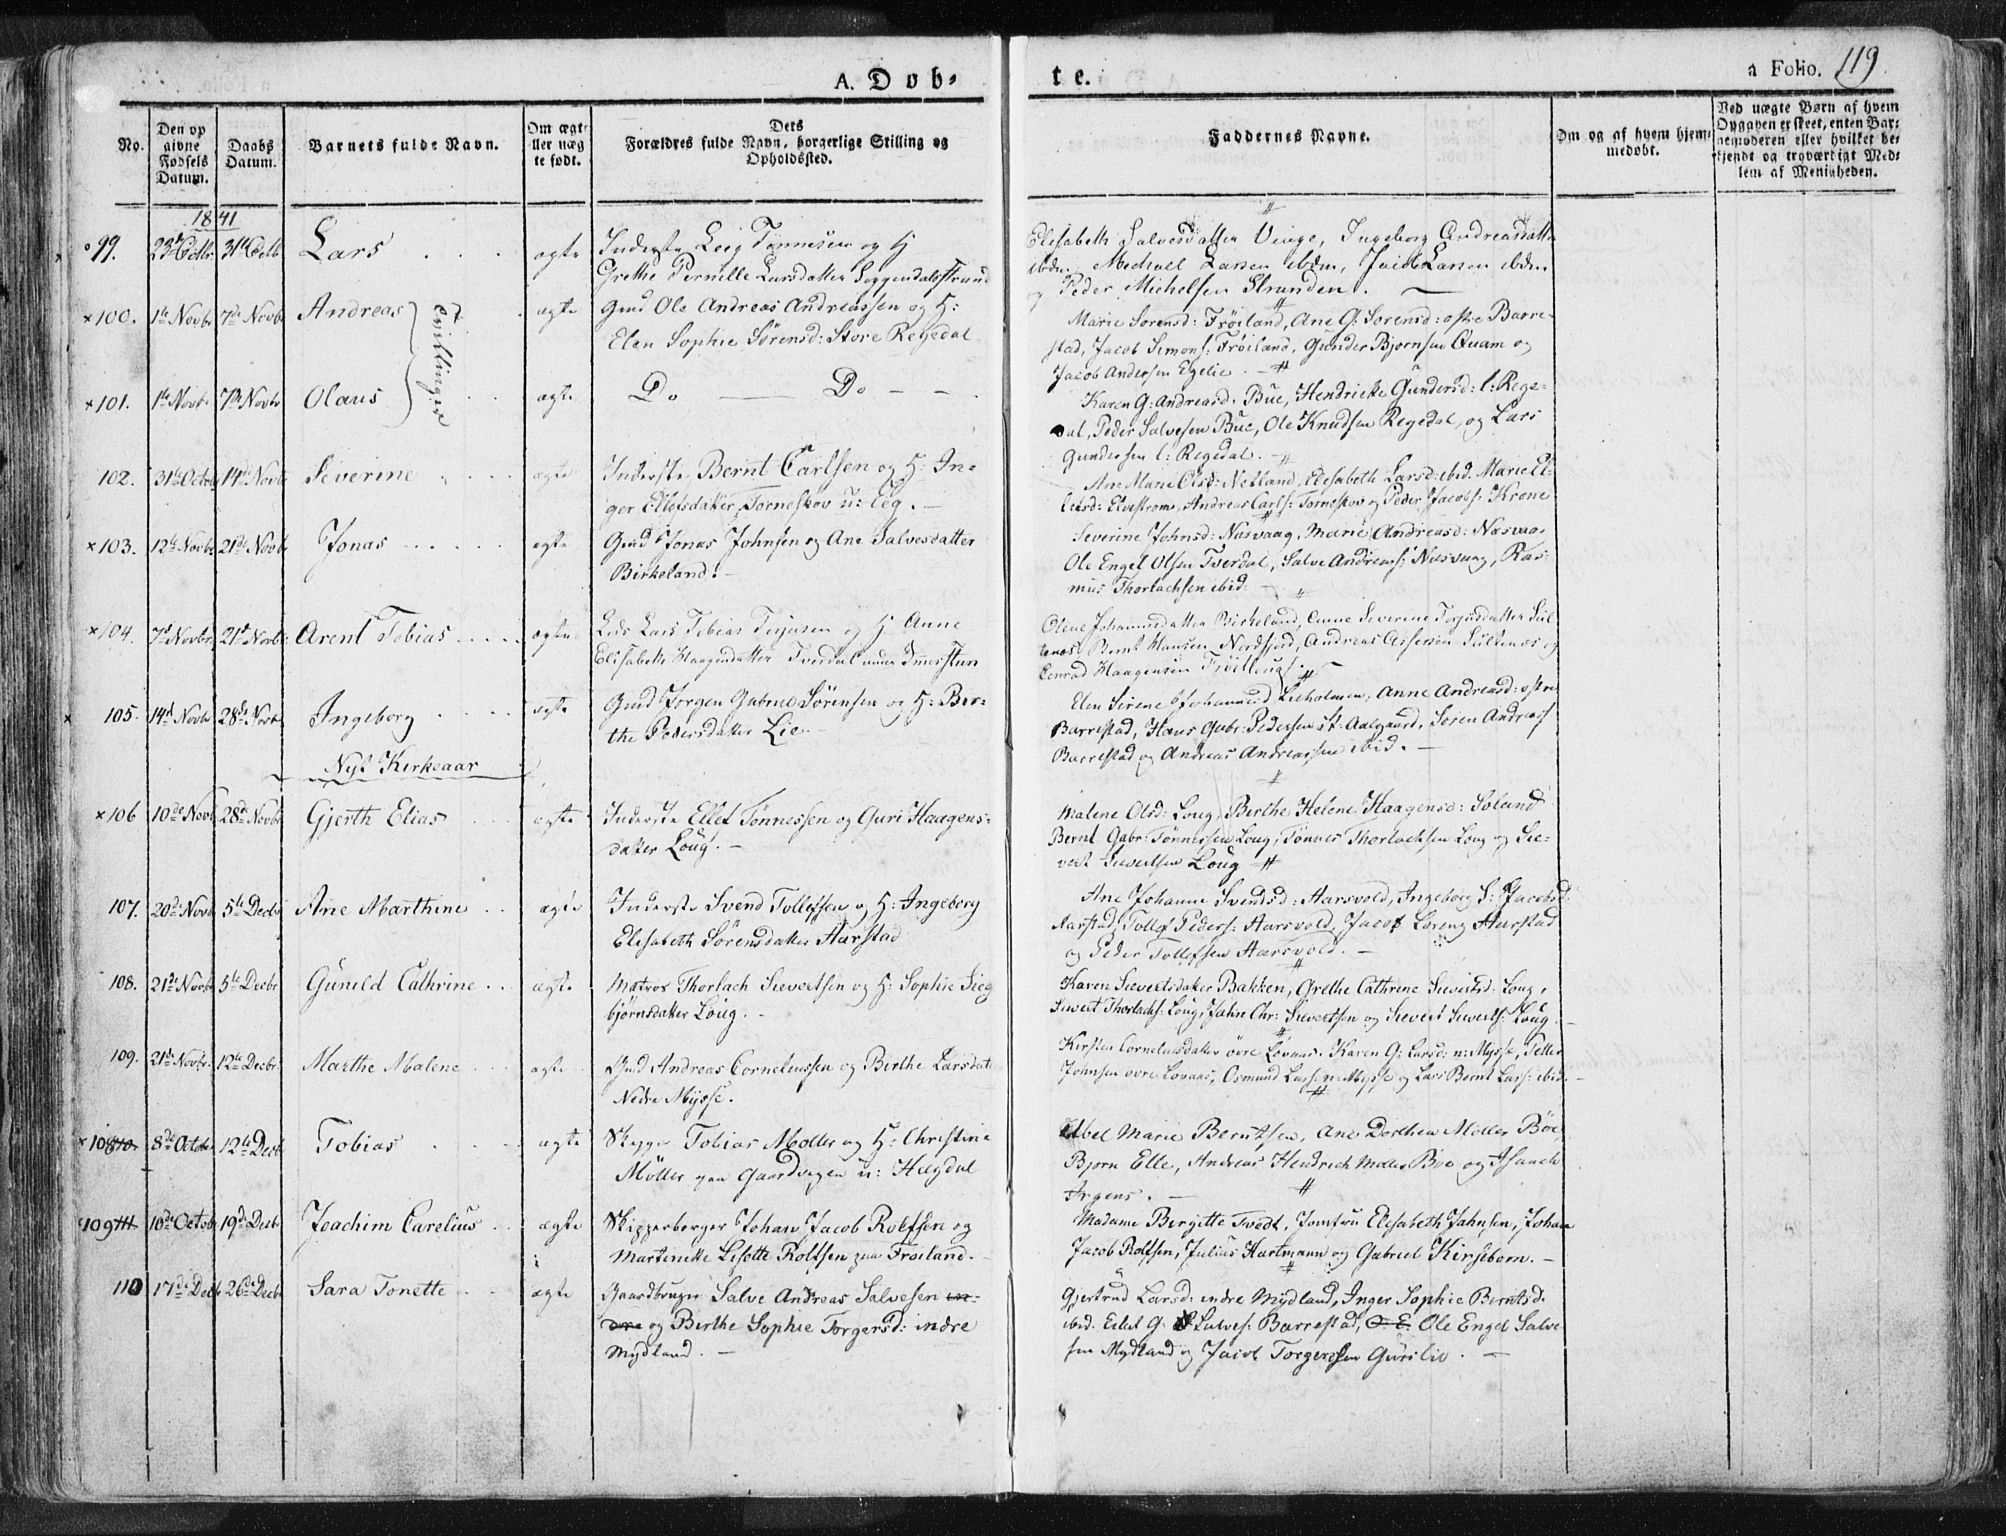 A. Dób=
te.
a Folio. 119
No.
Den op
givne
Fødsels
Datum.
Daabs
Datum.
Barnets fulde Navn.
Om ægt=
eller uæg
te født.
Dets
Forældres fulde Navn, borgerlige Stilling og
Opholdssted.
Faddernes Navne.
Om og af hvem hjem=
medøbt.
Ved uægte Børn af hvem
Opgaven er skeet, enten Bar=
nemoderen eller hvilket be=
kjendt og troværdigt Med=
lem af Menigheden.
1841
99. 23de Octbr 31te Octb Lars ægte
Inderste Leeg Tønnesen og H
Grethe Pernille Larsdatter Soggendalsstrand
Elisabeth Salvesdatter Vinge, Ingeborg Andreasdatter
ibdm. Michall Larsen ibdm, Jacob Larsen ibdm
og Peder Michelsen Stranden.
×100. 1te Novbr 7de Novbr Andreas Tvillinger ægte
Gmd Ole Andreas Andreassen og H:
Elen Sophie Sørensd: Store Regedal
Marie Sørensd: Frøiland, Ane G: Sørensd: østre Barre-
stad, Jacob Simons: Frøiland, Gunder Bjørnsen Quam og
Jacob Andersen Egelie. —
×101. 1te Novbr 7de Novbr Olaus ægte
Do — Do — —
Karen G: Andreasd. Bue, Hendrikke Gundersd: l: Rege-
dal, Peder Salvesen Bue, Ole Knudsen Regedal, og Lars
Gundersen l: Regedal. —
102. 31te Octobr 14de Novbr Severine ægte
Inderste Bernt Carlsen og H: In-
ger Ellefsdatter Torneskov u: Eeg. —
Ane Marie Olsd: Netland, Elisabeth Larsd: ibid. Marie El-
lefsd: Elvestrøm, Andreas Carls: Torneskov og Peder Jacobs: Krone
×103. 12te Novbr 21de Novbr Jonas ægte
Gmd Jonas Johnsen og Ane Salvesdatter
Birkeland. —
Severine Johnsd: Nesvaag, Marie Andreasd: Næsvaag
Ole Engel Olsen Tverdal, Salve Andreas: Næsvaag, Ras-
mus Thorlachsen ibid.
×104. 7d Novbr 21d Novbr Arent Tobias ægte
Lods Lars Tobias Terjesen og H Anne
Elisabeth Haagendatter Tverdal under
Olene Johannesdatter Birkeland, Anne Severine
Bernt Hansen Nordfjord, Andreas Assersen
Conrad Haagensen
105. 14d Novbr 28de Novbr Ingeborg ægte
Gmd Jørgen Gabriel Sørensen og H: Ber-
the Pedersdatter Lie. —
Elen Sirene Johannesd Lieholmen, Anne Andreasd: østre
Barrestad, Hans Gabr: Pedersen st: Aalgaard, Søren Andreas
Barrestad og Andreas Andreassen ibid. —
Nyt Kirkeaar
×106 10de Novbr 28de Novbr Gjerth Elias ægte
Inderste Ellef Tønnessen og Guri Haagens-
datter Løug. —
Malene Olsd: Loug, Berthe Helene Haagensd: Soland
Bernt Gabr: Tønnessen Loug, Tønnes Thorlachsen Loug og Sie-
vert Sievertsen Loug
107. 20de Novbr 5te Decbr Ane Marthine ægte
Inderste Svend Tollefsen og H: Ingeborg
Elisabeth Sørensdatter Aarstad
Ane Johanne Svendsd: Aarsvold, Ingeborg S: Jacobsd:
Aarstad, Tollef Peders: Aarsvold, Jacob Lorenz Aarstad
og Peder Tollefsen Aarsvold. —
108. 21de Novbr 5te Decbr Gunild Cathrine ægte
Matros Thorlach Sievertsen og H: Sophie Sieg
bjørnsdatter Løug. —
Karen Sievertsdatter Bakken, Grethe Cathrine Sievertsd: Loug,
Sievert Thorlachs: Loug, Jahn Chr: Sievertsen og Sievert Sieverts: Loug. —
109. 21de Novbr. 12te Decbr. Marthe Malene ægte
Gmd Andreas Corneliussen og Berthe Larsdat
Nedre Mysse.
Kirsten Corneliusdatter øvre Lovaas, Karen G: Larsd: n: Mysse, Peller
Johnsen øvre Lovaas, Osmund Lars: n: Mysse og Lars Bernt Lars: ibid. —
×108 110. 8de Octobr 12te Decbr Tobias ægte
Skipper Tobias Møller og H: Christine
Møller paa Gaardvegen u: Hægdal
Abel Marie Berntsen, Ane Dorthea Møller Bøe
Bjørn Elle, Andreas Hendrich Møller Bøe og Isaach
Irgens. —
109 111. 10de Octobr 19de Decbr Joachim Carelius ægte
Skipperborger Johan Jacob Rolfsen og
Martinette Lisette Rolfsen paa Frøiland. —
Madame Birgitte Tvedt, Jomfru Elisabeth Jahnsen, Johan
Jacob Rolfsen, Julius Hartmann og Gabriel Kirsebom. —
110 17de Decbr 26de Decbr Sara Tonette ægte
Gaardbruger Salve Andreas Salvesen in-
dre og Berthe Sophie Torgersd: indre
Mydland. —
Gjertrud Larsd: indre Mydland, Inger Sophie Berntsd.
ibid. Eilert G. Salves: Barrestad, O. E. Ole Engel Salve
sen Mydland og Jacob Torgersen Gurilie. —